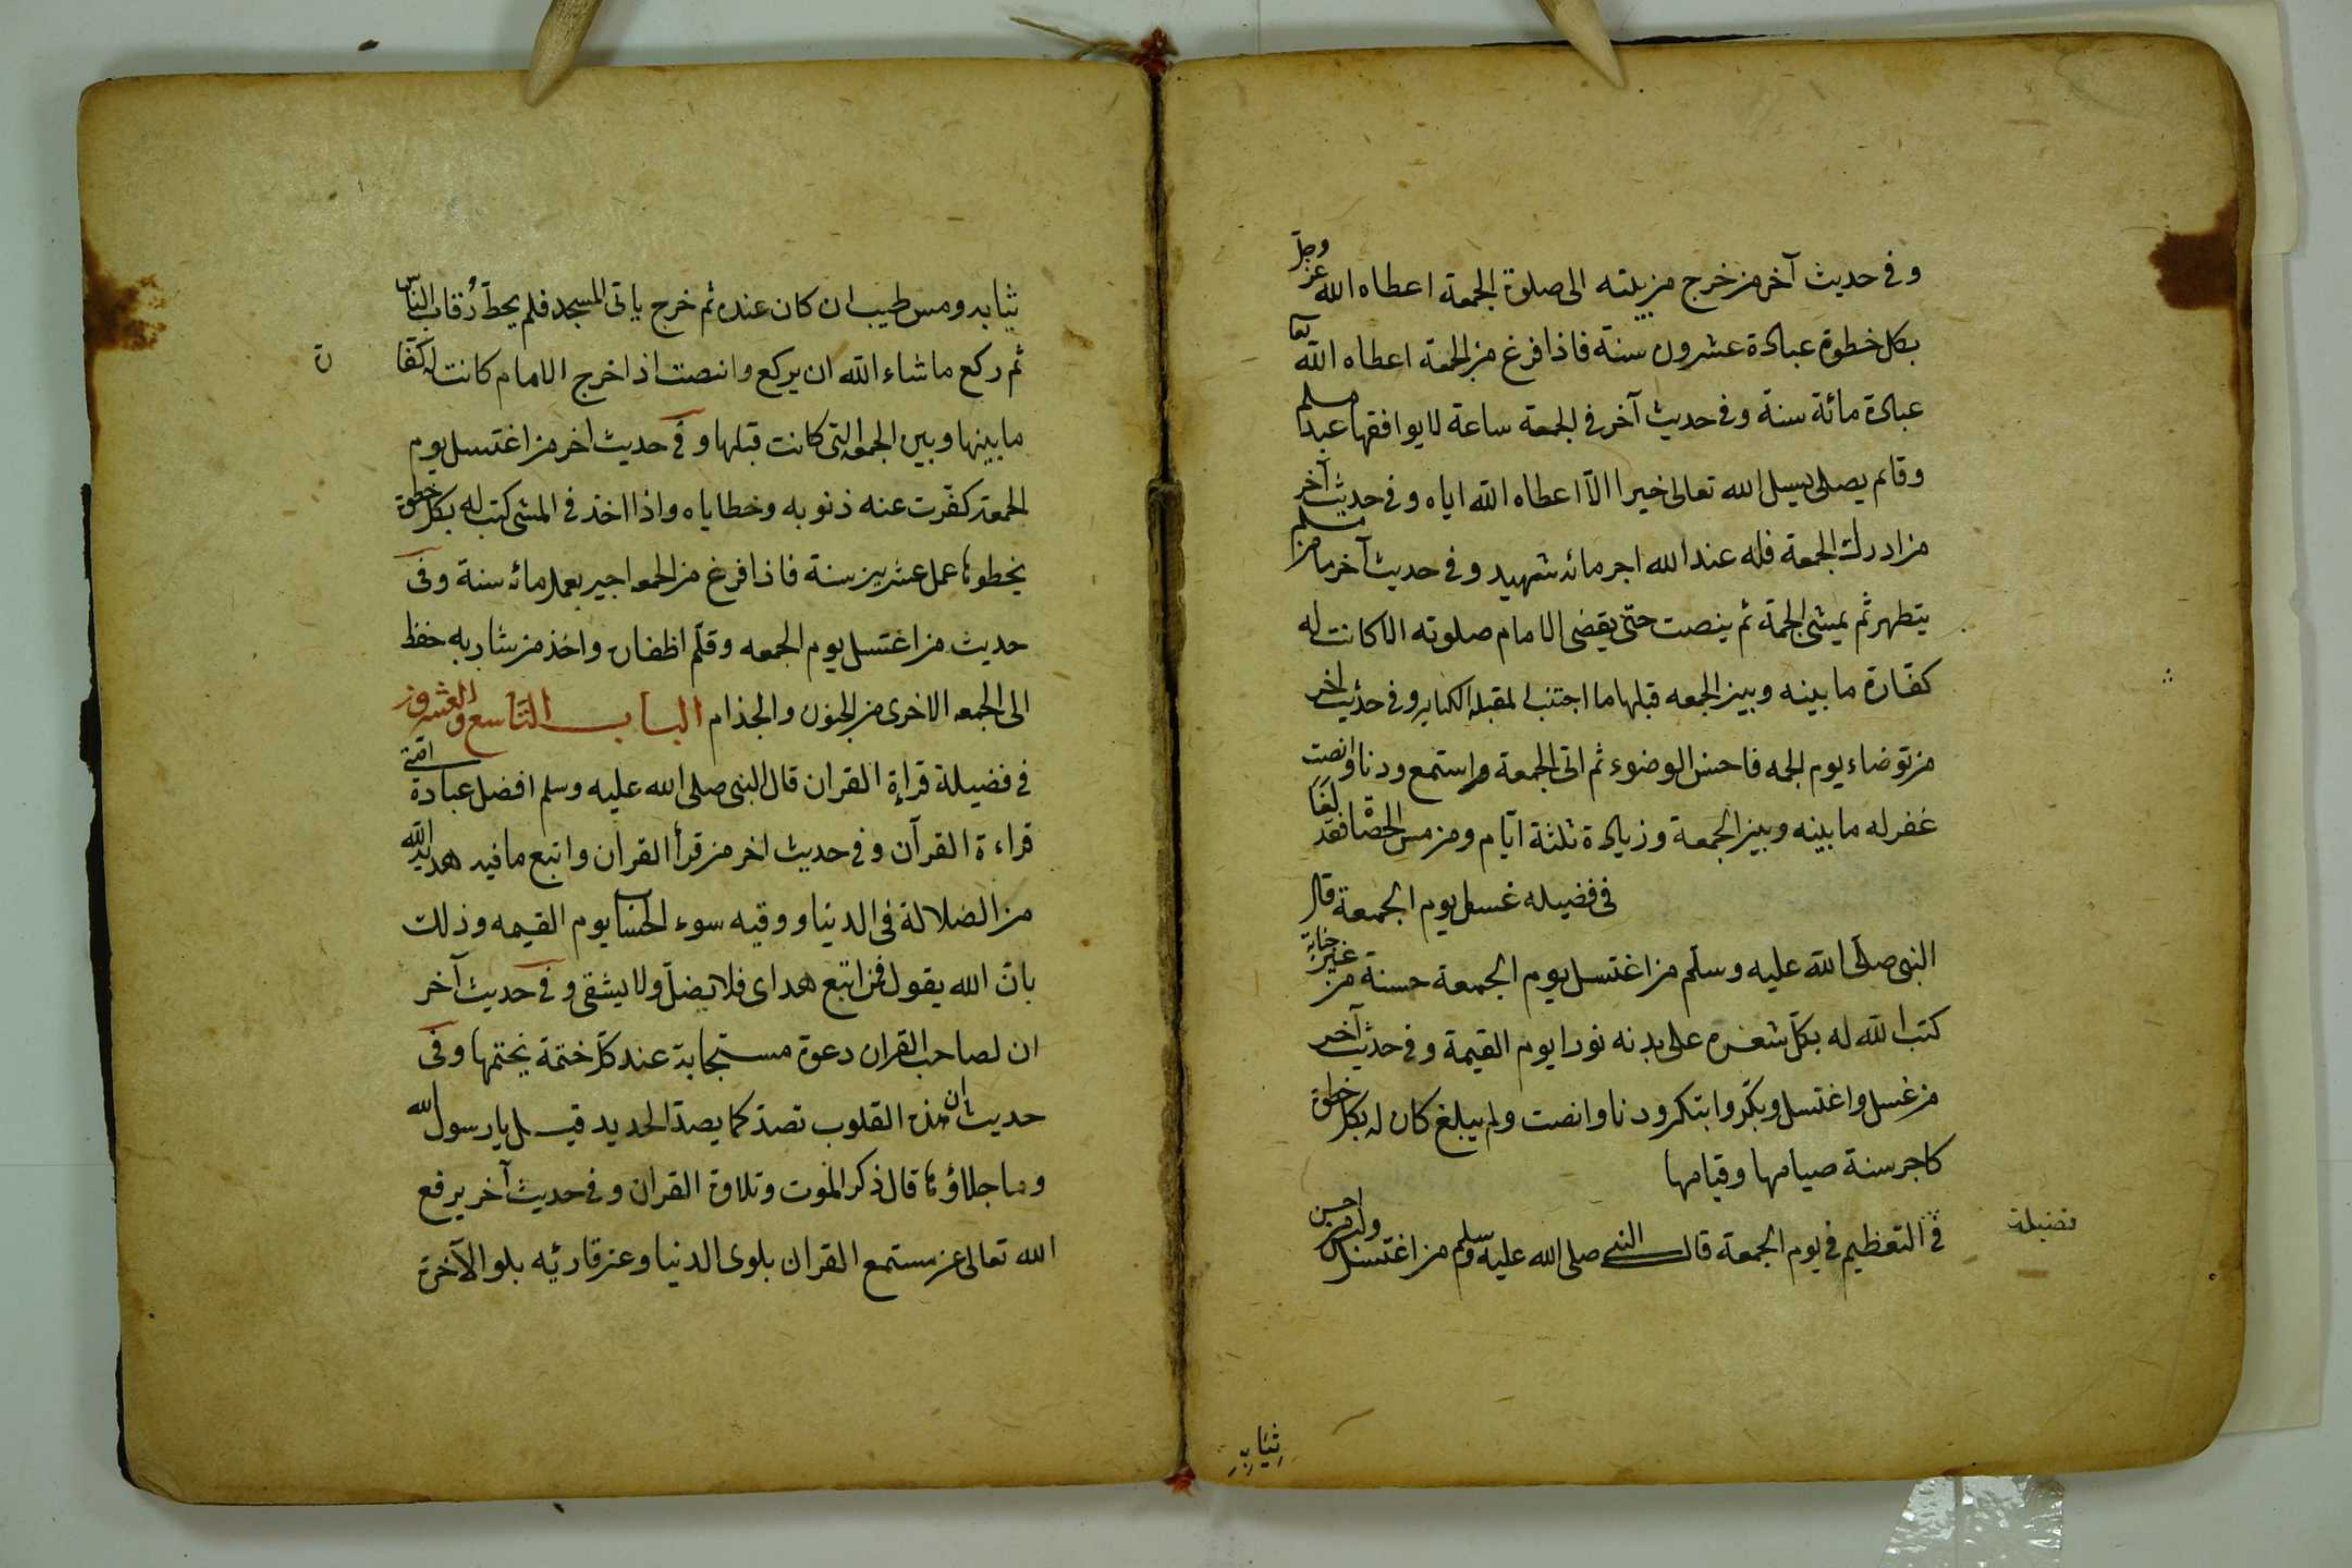 وفى حديث آخر من خرج من بيته الى صلوة الجمعة اعطاه الله عز وجل
بكل خطوة عبادة عشرون سنة فاذا فرغ من الجمعة اعطاه الله تعا
عبادة مائة سنة وفى حديث آخر فى الجمعة ساعة لا يوافقها عبد مسلم
وقائم يصلى يسيل الله تعالى خيرا الا اعطاه الله اياه وفى حديث آخر
من ادرك الجمعة فله عند الله اجر مائه شهيد وفى حديث آخر ما من مسلم
يتطهر ثم يمشى الجمة ثم ينصت حتى يقضى الامام صلوته الا كانت له
كفارة ما بينه وبين الجمعه قبلها ما اجتنب لمقبله الكباير وفى حديث اخر
من توضاء يوم الجمه فاحسن الوضوء ثم اتى الجمعة واستمع ودنا وانصت
غفر له ما بينه وبين الجمعة وزيادة ثلثة ايام ومن مس الحصا فقد لغا
فى فضيله غسل يوم الجمعة قال
النبى صلى الله عليه وسلم من اغتسل يوم الجمعة حسنة من غير جنابة
كتب الله له بكل شعره على بدنه نورا يوم القيمة وفى حديث آخر
من غسل واغتسل وبكر وابتكر ودنا وانصت ولم يبلغ كان له بكل خطوة
كاجر سنة صيامها وقيامها
فضيلة
فى التعظيم فى يوم الجمعة قال النبى صلى الله عليه وسلم من اغتسل ولبس من احسن
ثيابه
ثيابه ومس طيب ان كان عنده ثم خرج ياتى المسجد فلم يحط رقاب الناس
ثم ركع ما شاء الله ان يركع وانصت اذا خرج الامام كانت له كفا
ة
ما بينها وبين الجمعه التى كانت قبلها وفى حديث اخر من اغتسل يوم
الجمعة كفرت عنه ذنوبه وخطاياه واذا اخذ فى المشى كتب له بكل خطوة
يخطوها عمل عشرين سنة فاذا فرغ من الجمعه اجير بعمل مائه سنة وفى
حديث من اغتسل يوم الجمعه وقلم اظفاره واخذ من شاربه حفظ
الى الجمعه الاخرى من الجنون والجذام الباب التاسع والعشرون
فى فضيلة قراءة القران قال النبى صلى الله عليه وسلم افضل عبادة امتى
قراءة القرآن وفى حديث اخر من قرأ القران واتبع ما فيه هداه الله
من الضلالة فى الدنيا ووقيه سوء الحساب يوم القيمه وذلك
بان الله يقول فمن اتبع هداى فلا يضل ولا يشقى وفى حديث آخر
ان لصاحب القران دعوة مستجابة عند كل ختمة يختمها وفى
حديث ان هذه القلوب تصدۀ كما يصدۀ الحديد قيل يا رسول الله
وما جلاؤها قال ذكر الموت وتلاوة القران وفى حديث آخر يرفع
الله تعالى عن مستمع القران بلوى الدنيا وعن قارئه بلو الآخرة